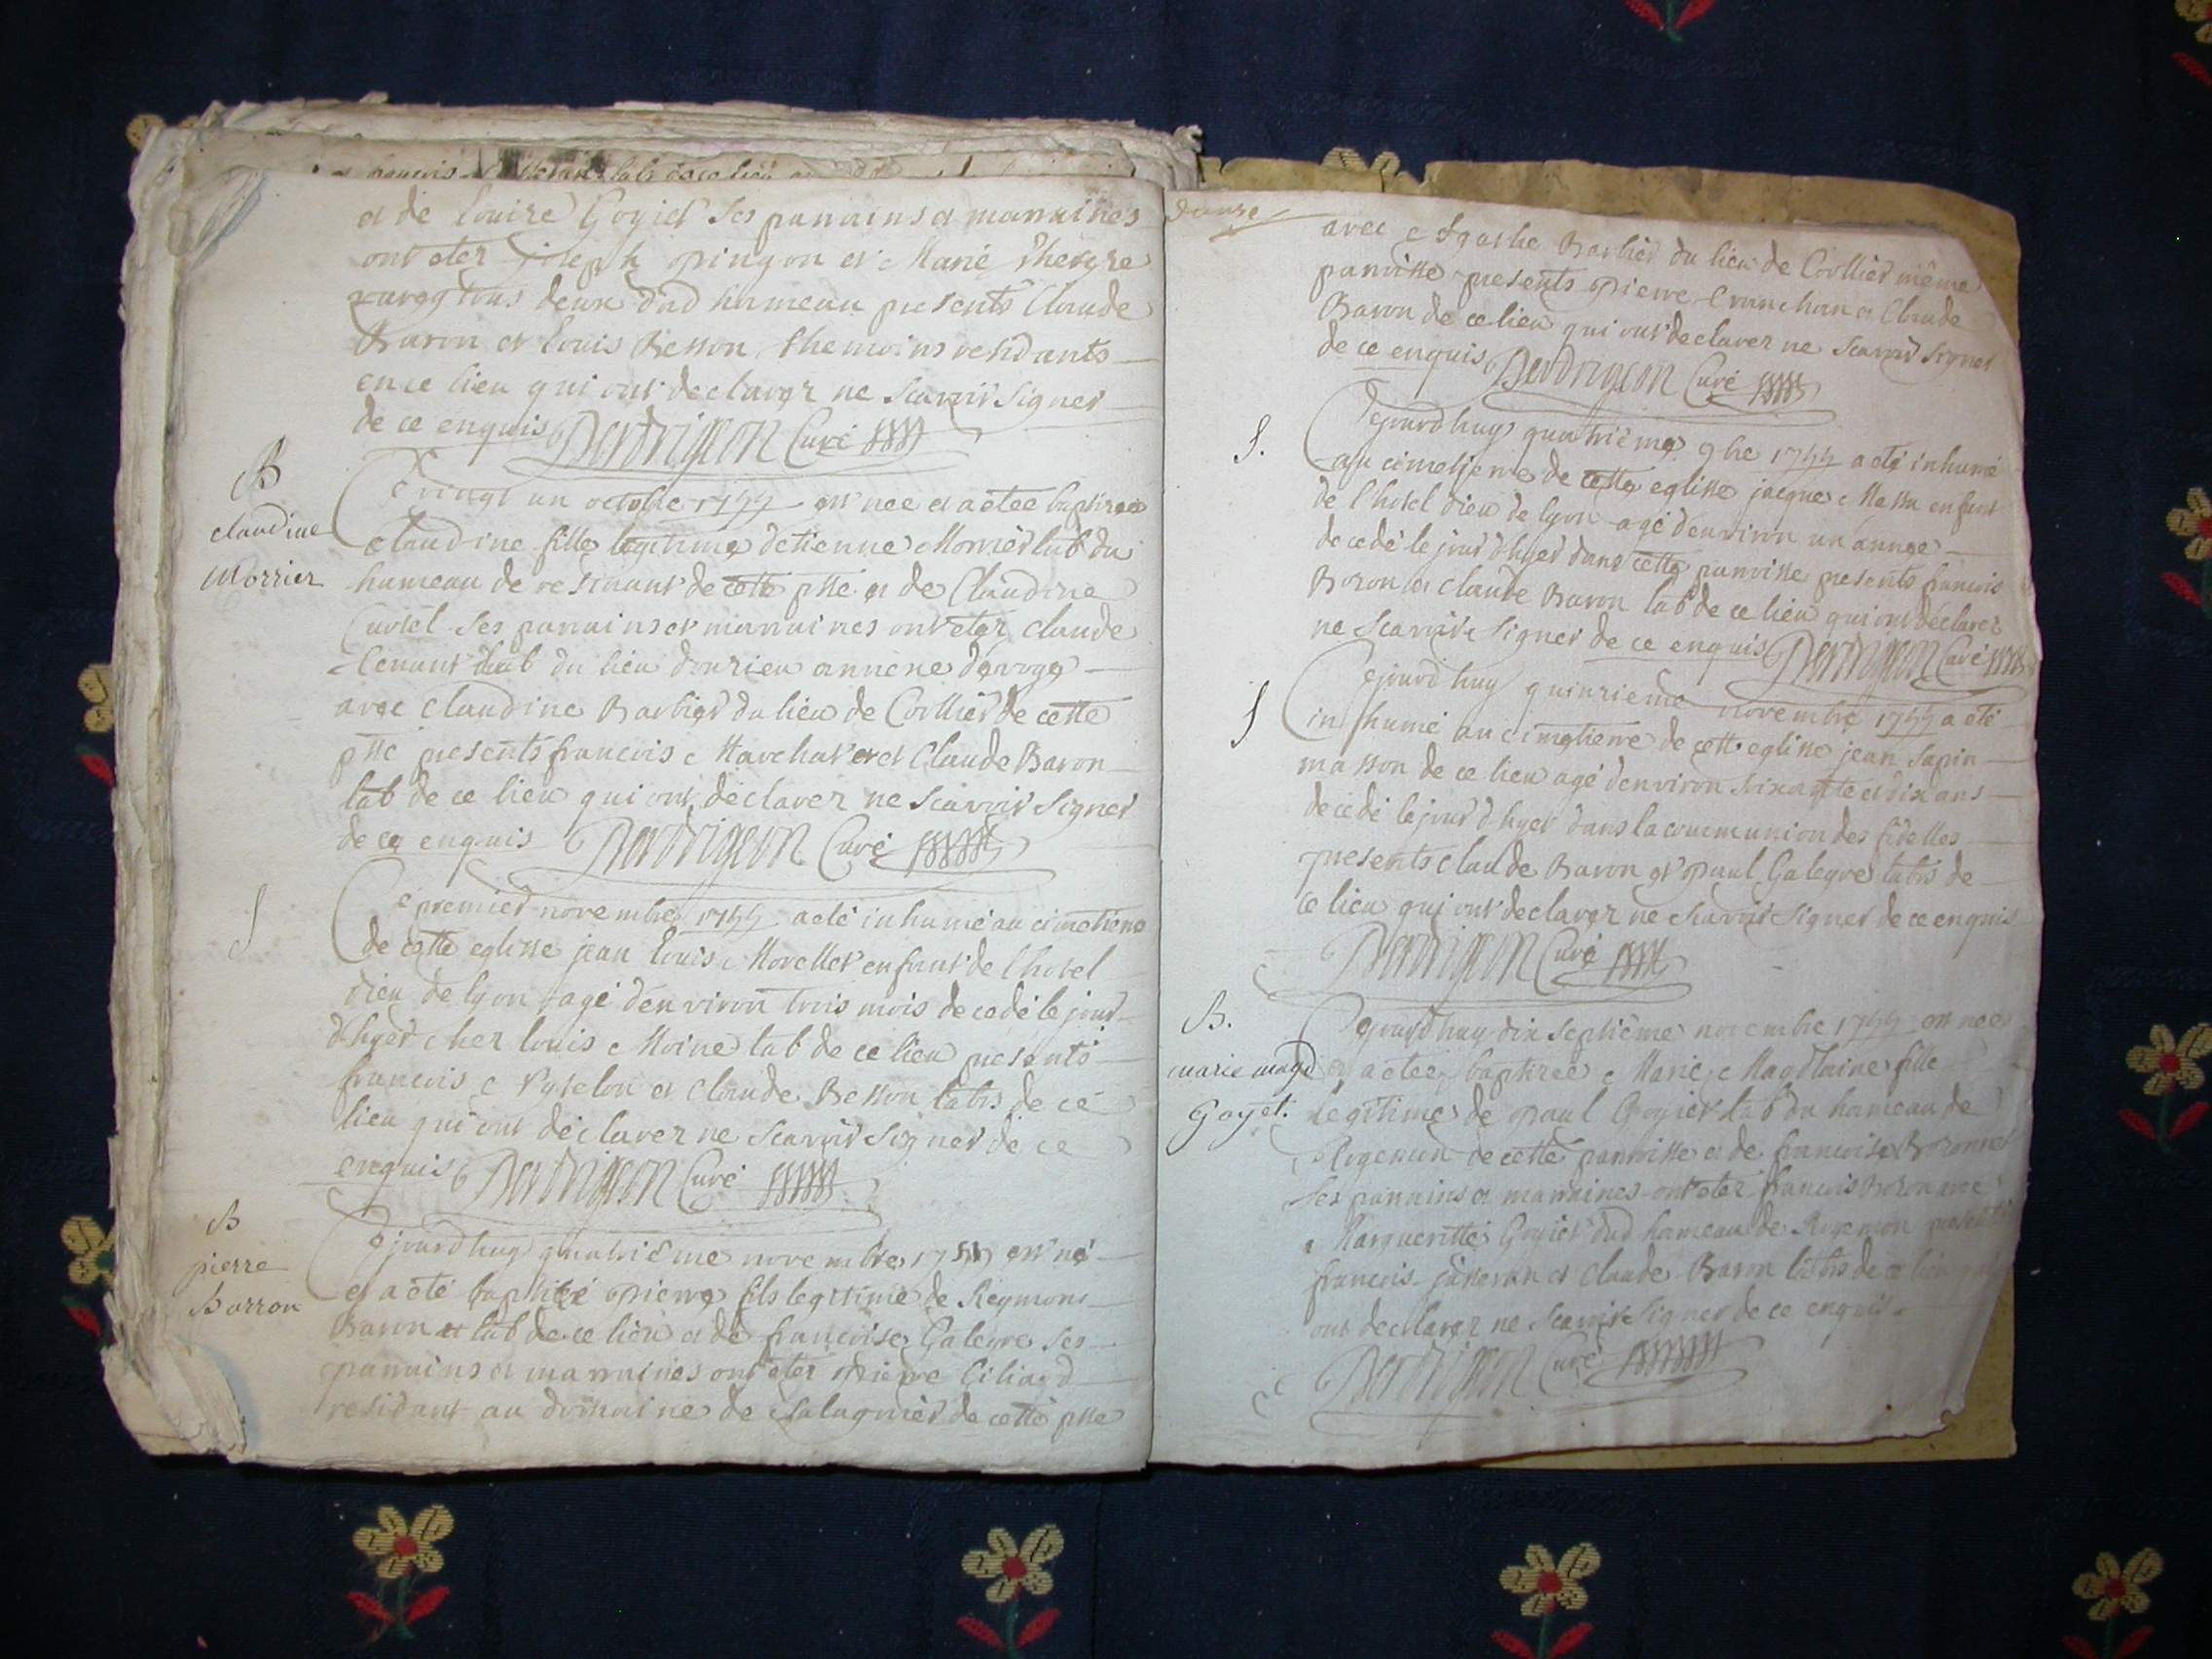 et de Louise Goyet ses parrains et marraines
ont eter joseph pingon et Marie therese
tous deux dud hameau presents Claude
Baron et Louis Besson themoins residants
en ce lieu qui ont declarer ne scavoir signer
de ce enquis Curé
B
claudine
Morrier
Ce vingt un octobre 1755 est nee et a etee baptisee
claudine fille legitime detienne Morrier lab du
hameau de de cette psse et de Claudine
Curtel ses parrains et marraines ont eter claude
lab du lieu annexe
avec claudine Barbier du lieu de Cortlier de cette
psse presents francois Marchat et Claude Baron
lab de ce lieu qui ont declarer ne scavoir signer
de ce enquis Curé
S
Ce premier novembre 1755 a eté inhumé au cimetiere
de cette eglisse jean Louis Morellet enfant de l'hotel
dieu de lyon agé denviron trois mois decedé le jour
d'hyer chez louis Moine lab de ce lieu presents
francois et claude Besson labrs de ce
lieu qui ont declarer ne scavoir signer de ce
enquis Curé
B
pierre
Barron
Cejourd huy quatrième novembre 1755 est né
et a eté baptisé pierre fils legitime de Reymond
Baron lab de ce lieu et de francoise Galeyre ses
parrains et marraines ont eter pierre
residant au domaine de de cette psse
avec Agathe Barbier du lieu de Cortlier même
parroisse presents pierre et Claude
Baron de ce lieu qui ont declarer ne scavoir signer
de ce enquis Curé
S.
Cejourd huy quatrième 9bre 1755 a eté inhumé
au cimetierre de cette eglisse jacque Massu enfant
de l'hotel dieu de lyon agé denviron un année
decedé le jour d'hyer dans cette parroisse presents francois
Boron et claude Baron lab de ce lieu qui ont déclarer
ne scavoir signer de ce enquis Curé
S
Cejourd huy quinzieme novembre 1755 a eté
inhumé au cimetierre de cette eglisse jean Sapin
masson de ce lieu agé denviron soixante et dix ans
decedé le jour d hyer dans la communion des fidelles
presents claude Baron et paul Galeyre labrs de
ce lieu qui ont declarer ne scavoir signer de ce enquis
Curé
B.
marie magd
Goyet.
Cejourd huy dix septième novembre 1755 est née
et a etée baptisée Marie Magdlaine fille
legitime de paul Goyet lab du hameau de
de cette parroisse et de francoise
ses parrains et marraines ont eter francois Boron avec
Margueritte Goyet dud hameau de presents
francois et claude Baron labrs de ce lieu qui
ont declarer ne scavoir signer de ce enquis.
Curé